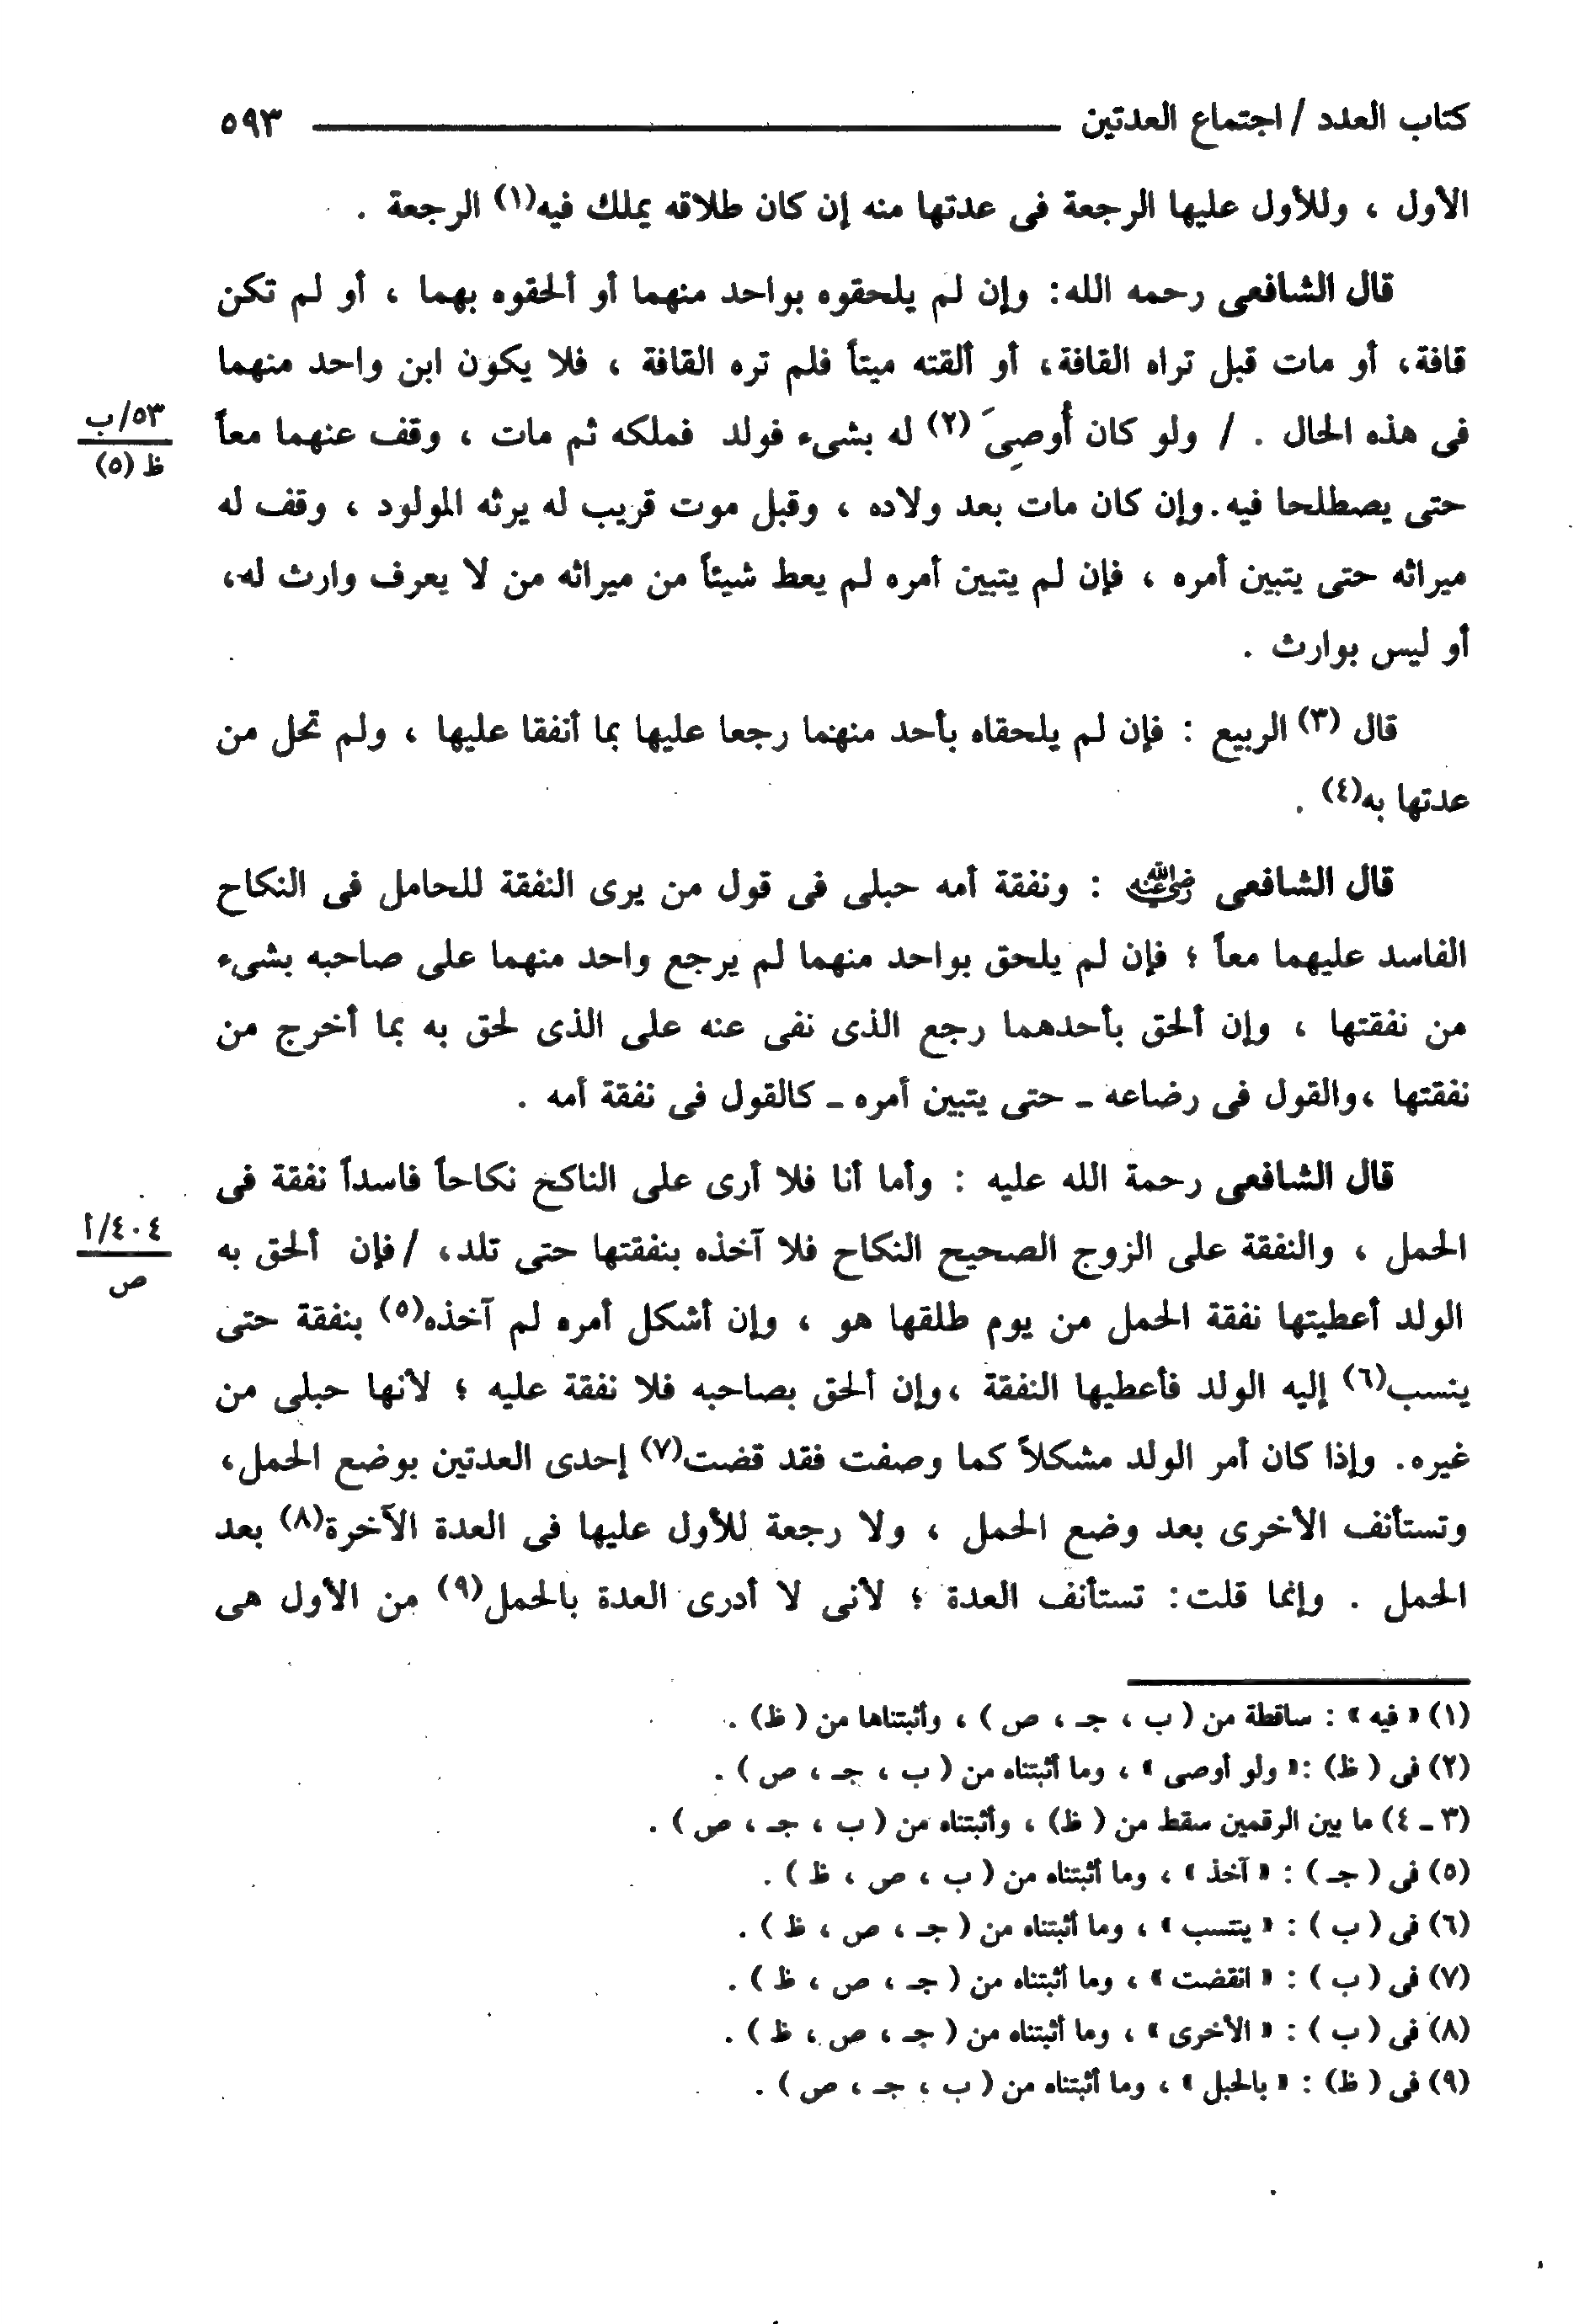 كتاب العدد / اجتماع العدتين ــــــــ ٥٩٣
الأول ، وللأول عليها الرجعة فى عدتها منه إن كان طلاقه يملك فيه(١) الرجعة .
قال الشافعى رحمه الله: وإن لم يلحقوه بواحد منهما أو ألحقوه بهما ، أو لم تكن
قافة، أو مات قبل تراه القافة، أو ألقته ميتاً فلم تره القافة ، فلا يكون ابن واحد منهما
فى هذه الحال . / ولو كان أُوصِىَ (٢) له بشىء فولد فملكه ثم مات ، وقف عنهما معاً
٥٣/ب
ظ (٥)
حتى يصطلحا فيه.وإن كان مات بعد ولاده ، وقبل موت قريب له يرثه المولود ، وقف له
ميراثه حتى يتبين أمره ، فإن لم يتبين أمره لم يعط شيئاً من ميراثه من لا يعرف وارث له،
أو ليس بوارث .
قال (٣) الربيع : فإن لم يلحقاه بأحد منهما رجعا عليها بما أنفقا عليها ، ولم تحل من
عدتها به(٤) .
قال الشافعى رضي الله عنه : ونفقة أمه حبلى فى قول من يرى النفقة للحامل فى النكاح
الفاسد عليهما معاً ؛ فإن لم يلحق بواحد منهما لم يرجع واحد منهما على صاحبه بشىء
من نفقتها ، وإن ألحق بأحدهما رجع الذى نفى عنه على الذى لحق به بما أخرج من
نفقتها ،والقول فى رضاعه ـ حتى يتبين أمره ـ كالقول فى نفقة أمه .
قال الشافعى رحمة الله عليه : وأما أنا فلا أرى على الناكح نكاحاً فاسداً نفقة فى
الحمل ، والنفقة على الزوج الصحيح النكاح فلا آخذه بنفقتها حتى تلد، /فإن ألحق به
٤٠٤/أ
ص
الولد أعطيتها نفقة الحمل من يوم طلقها هو ، وإن أشكل أمره لم آخذه(٥) بنفقة حتى
ينسب(٦) إليه الولد فأعطيها النفقة ،وإن ألحق بصاحبه فلا نفقة عليه ؛ لأنها حبلى من
غيره. وإذا كان أمر الولد مشكلاً كما وصفت فقد قضت(٧) إحدى العدتين بوضع الحمل،
وتستأنف الأخرى بعد وضع الحمل ، ولا رجعة للأول عليها فى العدة الآخرة(٨) بعد
الحمل . وإنما قلت: تستأنف العدة ؛ لأنى لا أدرى العدة بالحمل(٩) من الأول هى
(١) « فيه » : ساقطة من ( ب ، جـ ، ص ) ، وأثبتناها من ( ظ) .
(٢) فى ( ظ) :« ولو أوصى » ، وما أثبتناه من ( ب ، جـ ، ص ) .
(٣ ـ ٤) ما بين الرقمين سقط من ( ظ) ، وأثبتناه من ( ب ، جـ ، ص ) .
(٥) فى ( جـ ) : « آخذ » ، وما أثبتناه من ( ب ، ص ، ظ ) .
(٦) فى ( ب ) : « ينتسب » ، وما أثبتناه من ( جـ ، ص ، ظ ) .
(٧) فى ( ب ) : « انقضت » ، وما أثبتناه من ( جـ ، ص ، ظ ) .
(٨) فى ( ب ) : « الأخرى » ، وما أثبتناه من ( جـ ، ص ، ظ ) .
(٩) فى ( ظ) : « بالحبل » ، وما أثبتناه من ( ب ، جـ ، ص ) .